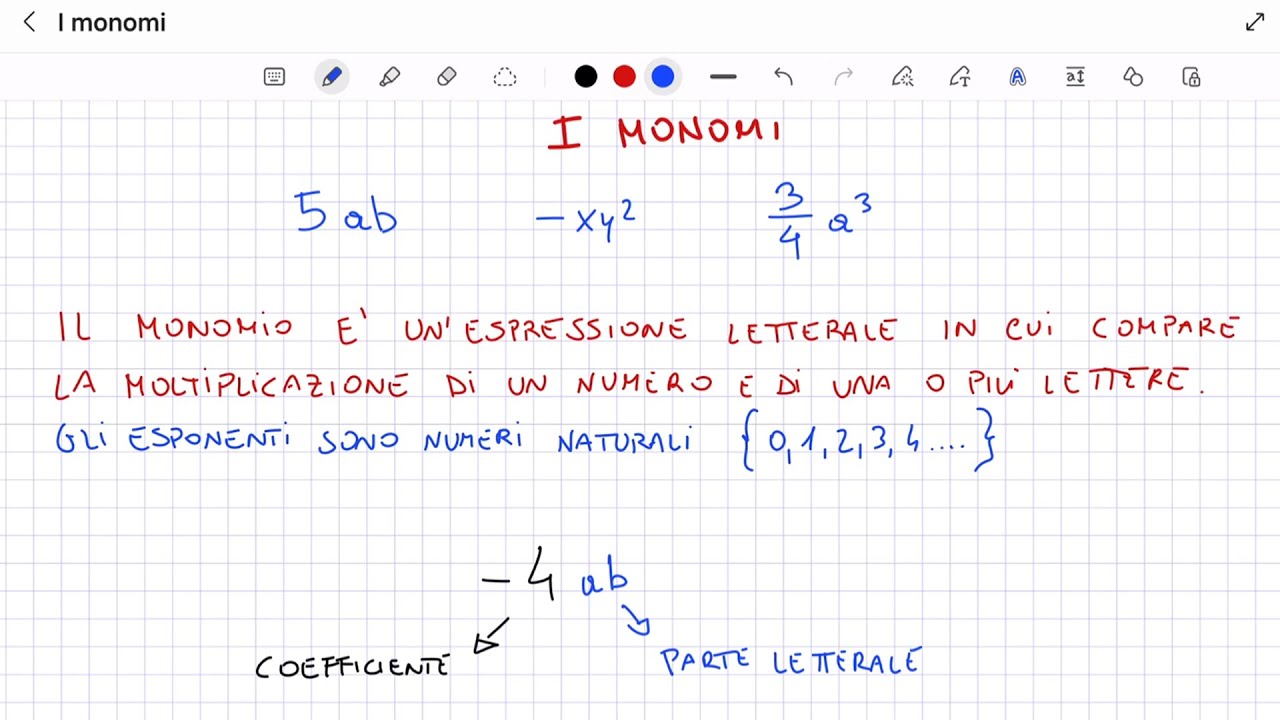 I monomi
I MONOMI
5ab -xy² 3/4 a³
IL MONOMIO E' UN'ESPRESSIONE LETTERALE IN CUI COMPARE
LA MOLTIPLICAZIONE DI UN NUMERO E DI UNA O PIÙ LETTERE.
GLI ESPONENTI SONO NUMERI NATURALI {0,1,2,3,4....}
-4ab
COEFFICIENTE PARTE LETTERALE